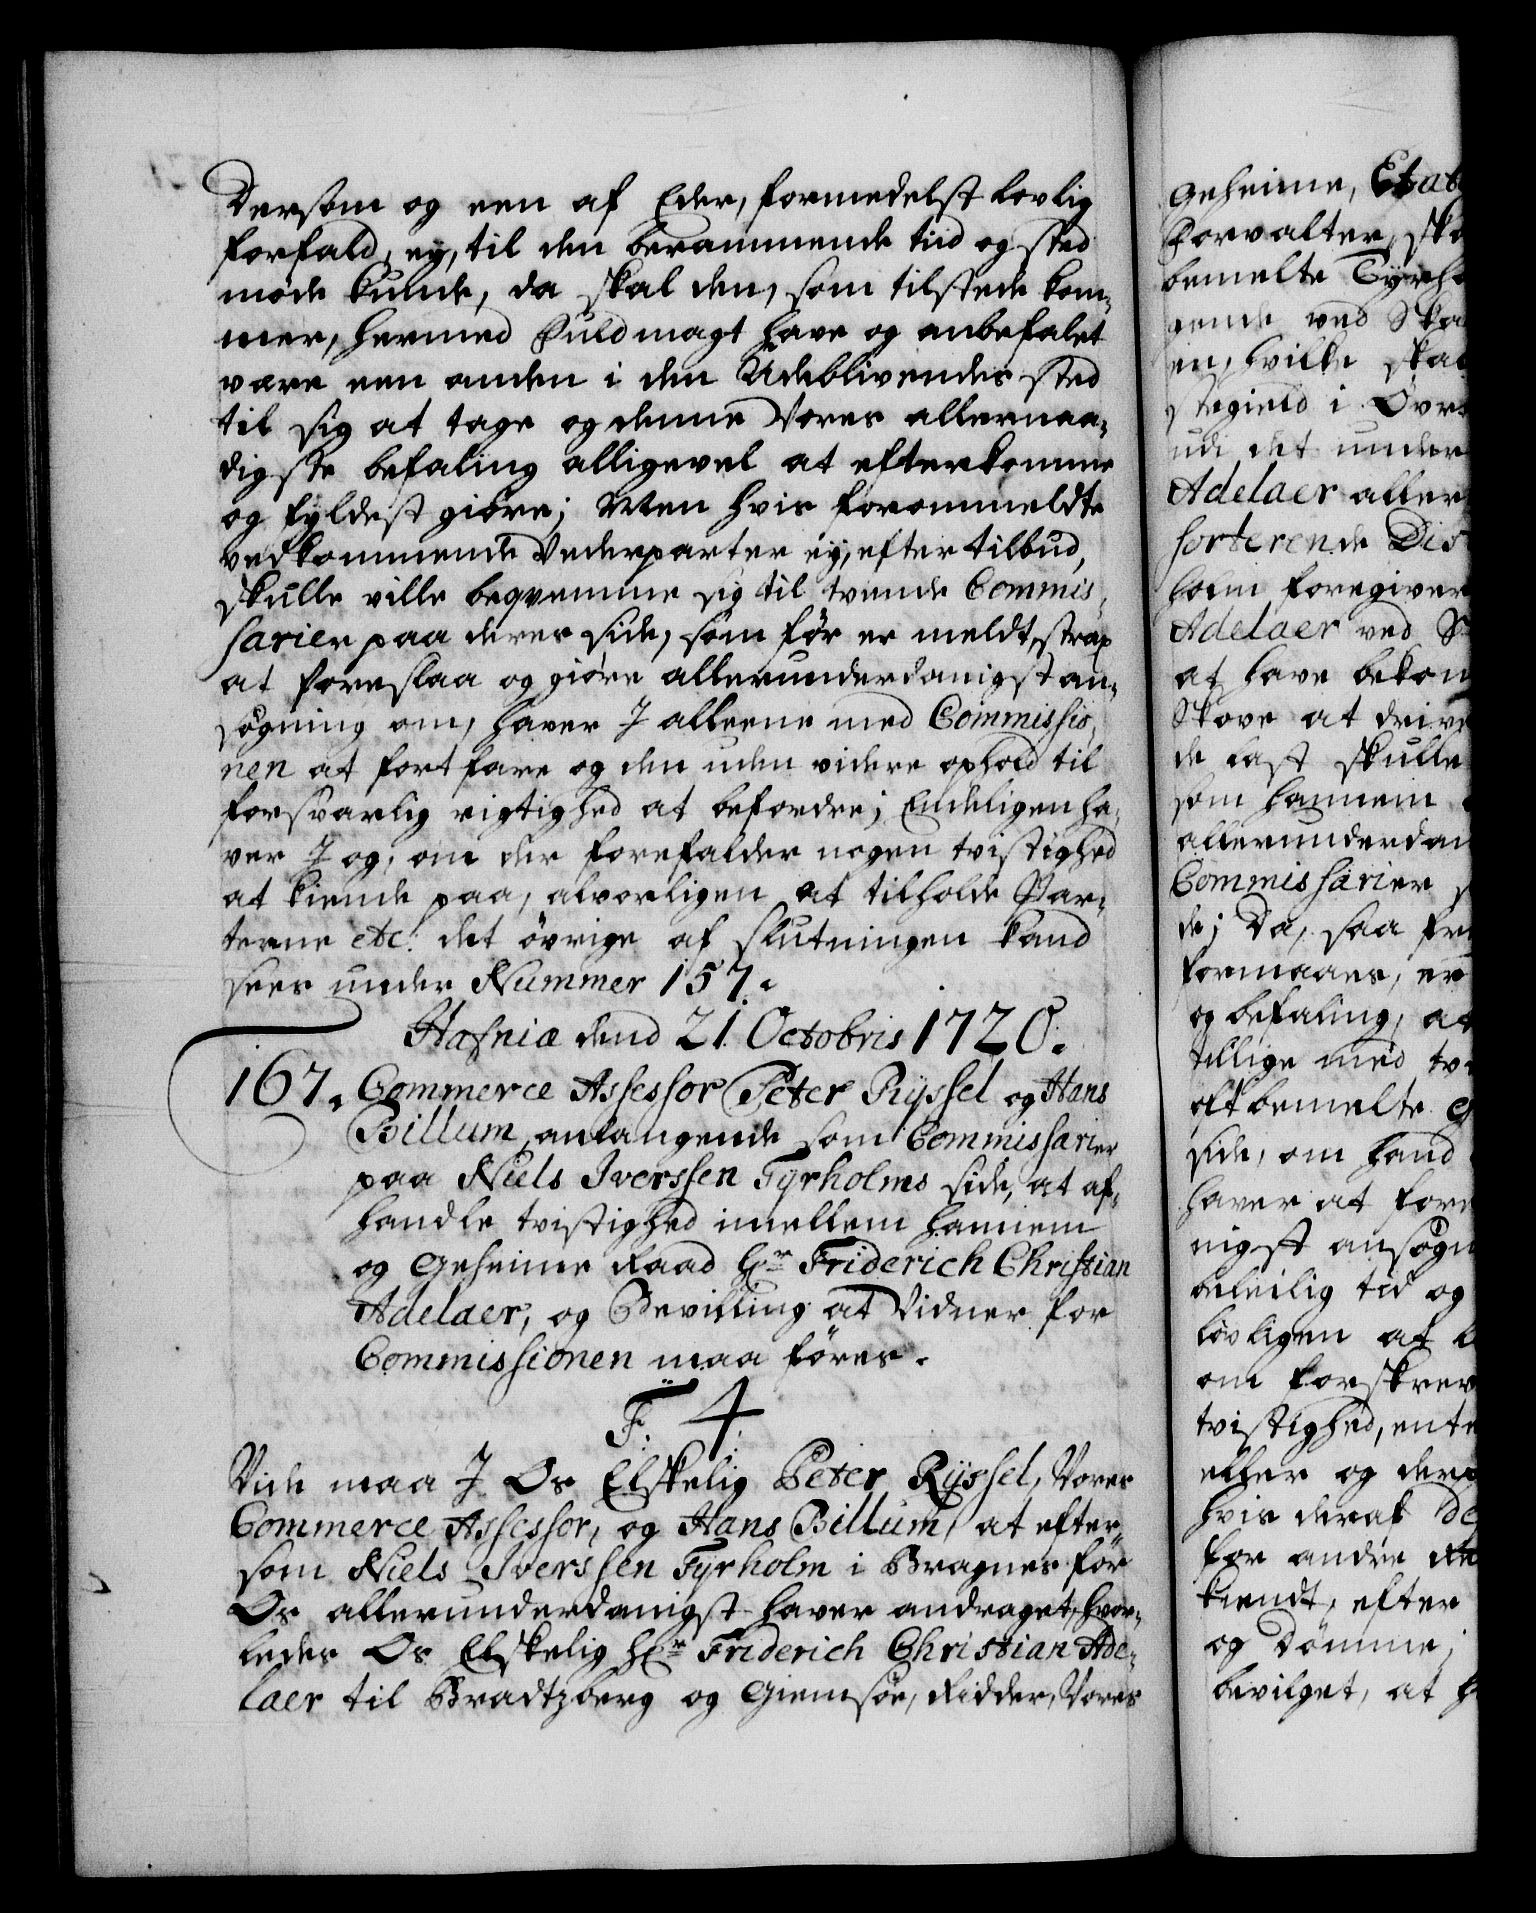 Dersom og een af Eder, formedelst lovlig
forfald, ey, til den berammende tiid og sted
møde kunde, da skal den, som tilstede kom-
mer, hermed Fuldmagt have og anbefalet
være een anden i den Udeblivendes sted
til sig at tage og denne Vores allernaa-
digste befaling alligevel at efterkomme
og fyldest giøre; Men hvis forommeldte
vedkommende Vederparter ey, efter tilbud,
skulle ville beqvemme sig til tvende Commis-
sarier paa deres side, som før er meldt, strax
at foreslaa og giøre allerunderdanigst an-
søgning om, haver I alleene med Commissio-
nen at fortfare og den uden videre ophold til
forsvarlig rigtighed at befordre; Endeligen ha-
ver I og, om der forefalder nogen tvistighed
at kiende paa, alvorligen at tilholde Par-
terne etc: det øvrige af slutningen kand
sees under Nummer 157.
Hafniæ dend 21. Octobris 1720.
167. Commerce Assessor Peter Ryssel og Hans
Billum, anlangende som Commissarier
paa Niels Iverssen Tyrholms side, at af-
handle tvistighed imellem hannem
og Geheime Raad Hr Friderich Christian
Adelaer, og Bevilling at Vidner for
Commissionen maa føres.
F. 4
Viide maa I Os Elskelig Peter Ryssel, Vores
Commerce Assessor, og Hans Billum, at efter-
som Niels Iverssen Tyrholm i Bragnes for
Os allerunderdanigst haver andraget, hvor-
ledes Os Elskelig Hr Friderich Christian Ade-
laer til Bradtzberg og Giemsøe, Ridder, Vores
Geheime, Etat
Forvalter, ska
bemelte Tyrho
gende ved Ska
en, hvilke skal
stegield i Øvre
udi det under
Adelaer aller
sorterende Dis
holm foregiver
Adelaer ved S
at have bekom
Skove at drive
de last skulle
som hannem
allerunderdan
Commissarier
de; Da, saa fre
formaaes, er
og befaling, at
tillige med tve
oftbemelte G
side, om hand
haver at fore
nigst ansøgn
beleilig tid og
lovligen at
om forskrev
tvistighed, ente
eller og der
hvis deraf de
for andre Re
kiendt, efter
og dømme;
bevilget, at h